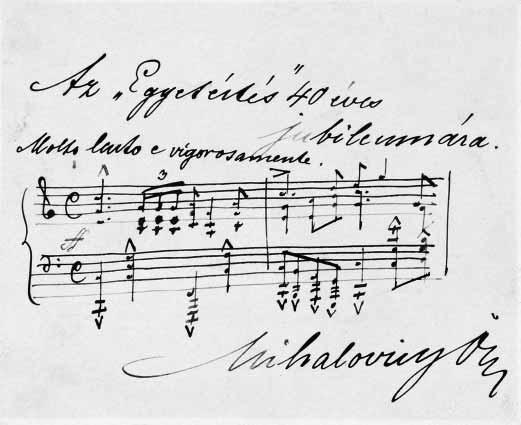 Az „Egyetértés" 40 éves
jubileumára.
Molto lento e vigorosamente.
3
ff
Mihalovich Ödön